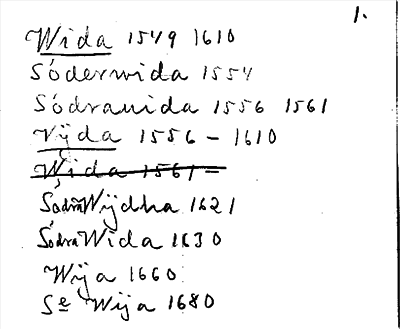 1.
Wida 1549 1610
Sóderwida 1554
Sódrauida 1556 1561
Vÿda 1556 - 1610
Wida 1561 -
Södra Wÿdha 1621
Södra Wida 1630
Wÿa 1660
Se Wija 1680